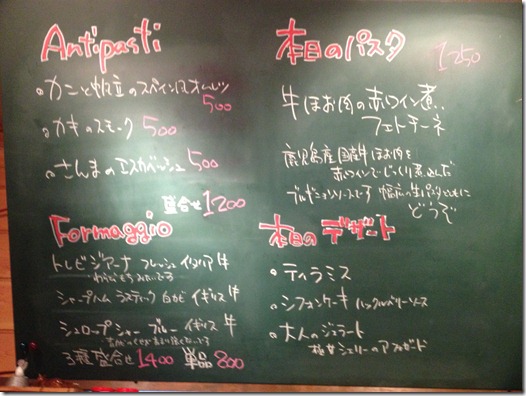 Antipasti
・カニと帆立のスペイン風オムレツ
500
・カキのスモーク 500
・さんまのエスカベッシュ 500
盛合せ 1200
Formaggio
トレビジアーナ フレッシュ イタリア 牛
シャープハム ラスティック 白カビ イギリス 牛
シュロップシャー ブルー イギリス 牛
3種盛合せ 1400 単品 800
本日のパスタ 1250
牛ほお肉の赤ワイン煮
フェトチーネ
鹿児島産国産牛ほお肉を
赤ワインでじっくり煮込んだ
ブルギニョンソースです
生パスタとともに
どうぞ
本日のデザート
・ティラミス
・シフォンケーキ ハックルベリーソース
・大人のジェラート
極甘シェリーのアフォガード